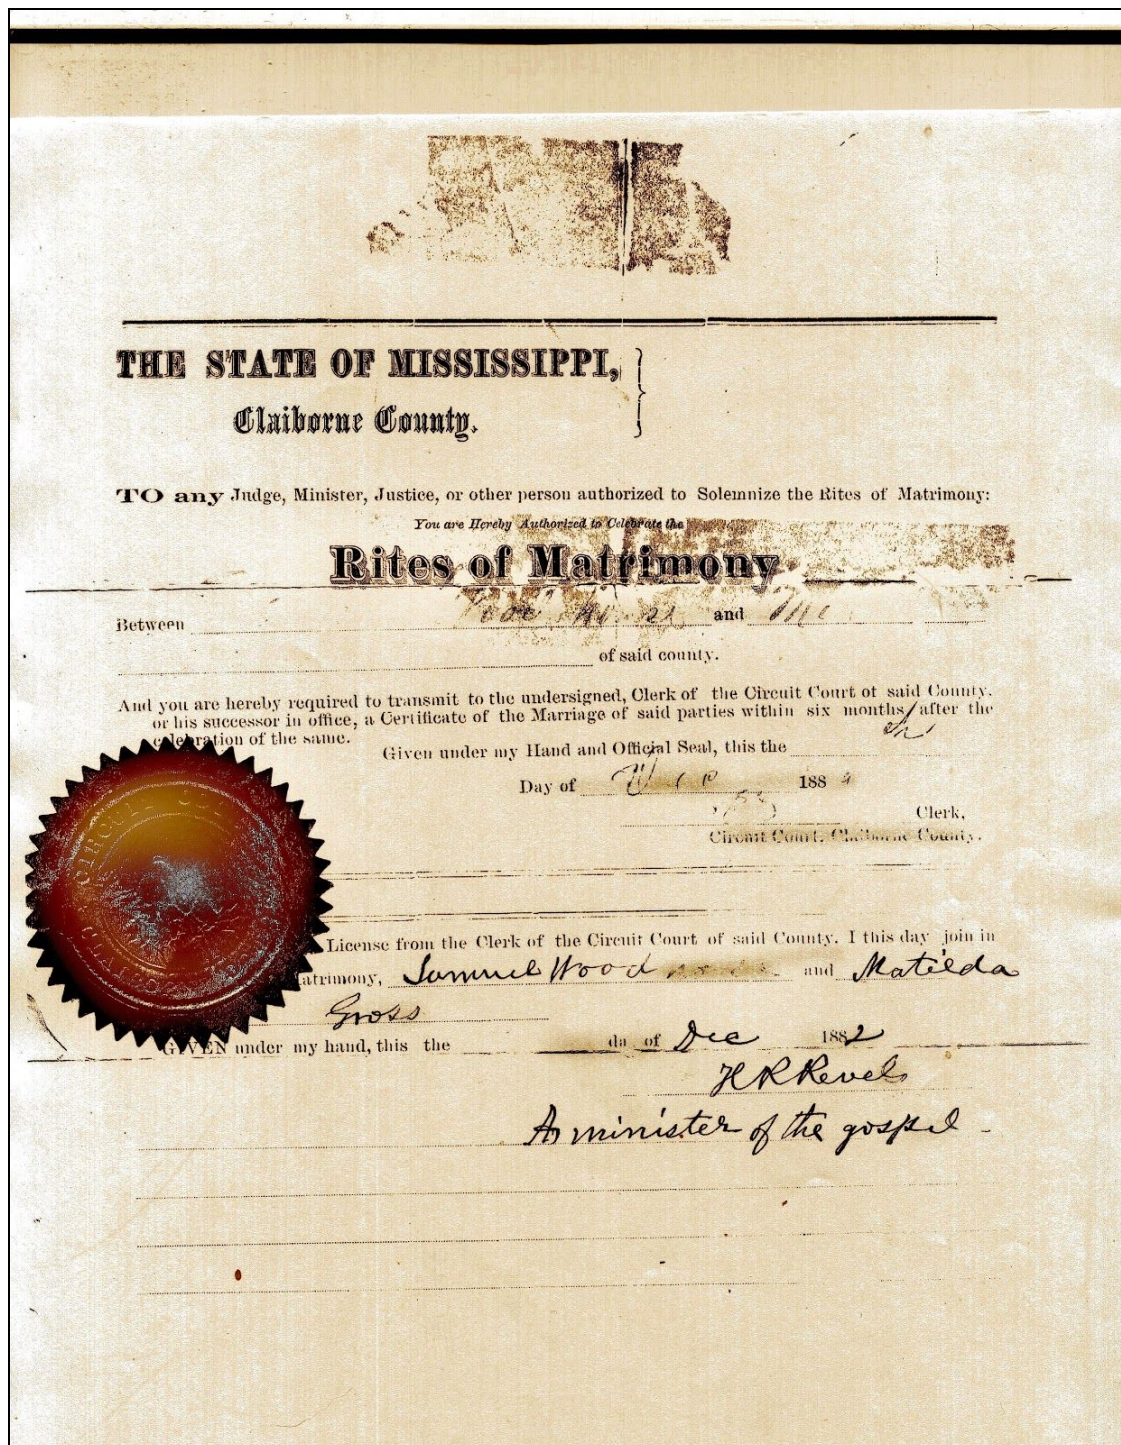 THE STATE OF MISSISSIPPI,
Claiborne County.
TO any Judge, Minister, Justice, or other person authorized to Solemnize the Rites of Matrimony:
You are Hereby Authorized to Celebrate the
Rites of Matrimony
Between and
of said county.
And you are hereby required to transmit to the undersigned, Clerk of the Circuit Court of said County.
or his successor in office, a Certificate of the Marriage of said parties within six months after the
celebration of the same.
Given under my Hand and Official Seal, this the
Day of 188
Clerk,
Circuit Court, Claiborne County.
License from the Clerk of the Circuit Court of said County. I this day join in
atrimony, Samuel Wood and Matilda
Gross
GIVEN under my hand, this the da of Dec 1882
H R Revels
A minister of the gospel